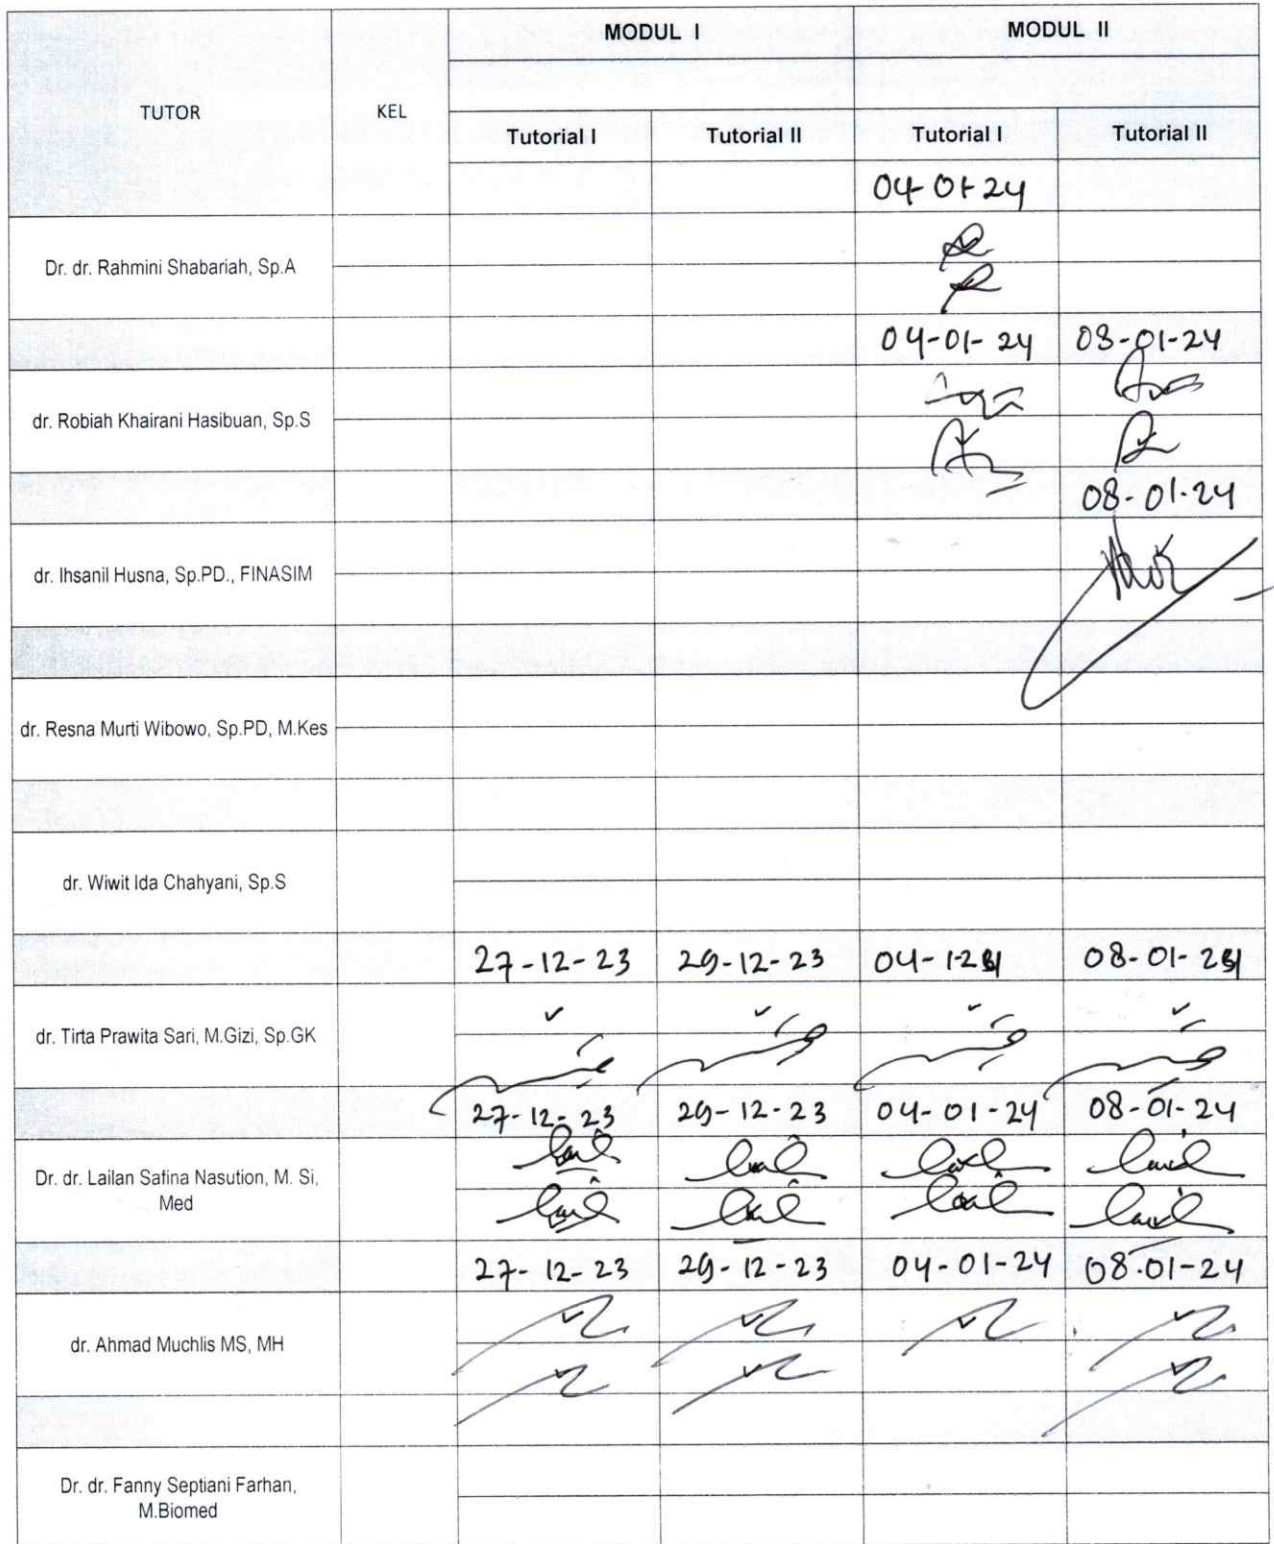 MODUL I MODUL II
TUTOR KEL
Tutorial I Tutorial II Tutorial I Tutorial II
04-01-24
Dr. dr. Rahmini Shabariah, Sp.A
04-01-24 08-01-24
dr. Robiah Khairani Hasibuan, Sp.S
08-01-24
dr. Ihsanil Husna, Sp.PD., FINASIM
dr. Resna Murti Wibowo, Sp.PD, M.Kes
dr. Wiwit Ida Chahyani, Sp.S
27-12-23 29-12-23 04-1-24 08-01-24
dr. Tirta Prawita Sari, M.Gizi, Sp.GK
27-12-23 29-12-23 04-01-24 08-01-24
Dr. dr. Lailan Safina Nasution, M. Si,
Med
27-12-23 29-12-23 04-01-24 08-01-24
dr. Ahmad Muchlis MS, MH
Dr. dr. Fanny Septiani Farhan,
M.Biomed